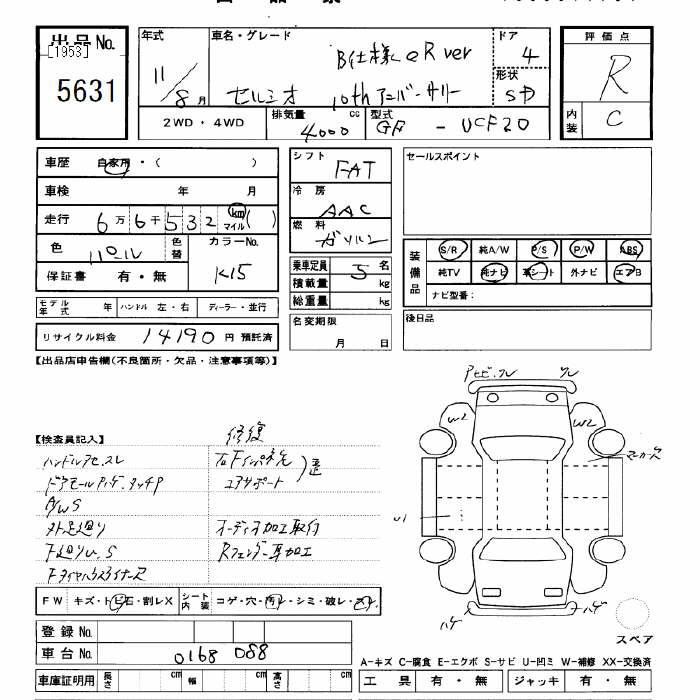 出品No.
[1953]
5631
年式
11/8月
車名・グレード
B仕様eR ver
セルシオ 10thアニバーサリー
ドア
4
形状
SD
評価点
R
内装
C
2WD・4WD
排気量
4000
cc
型式
GF - UCF20
車歴
自家用・( )
車検
年 月
走行
6万6千532
km
マイル
( )
色
パール
色替
カラーNo.
K15
保証書
有・無
シフト
FAT
冷房
AAC
燃料
ガソリン
乗車定員
5名
積載量
kg
総重量
kg
名変期限
月 日
セールスポイント
装備品
S/R 純A/W P/S P/W ABS
純TV 純ナビ 革シート 外ナビ エアB
ナビ型番:
後日品
モデル年式
年
ハンドル
左・右
ディーラー・並行
リサイクル料金
14190円 預託済
【出品店申告欄(不良箇所・欠品・注意事項等)】
【検査員記入】
修復
ハンドルアセ.スレ
A/W S
オーディオ加工取付
Rフェンダー耳加工
W2
W2
U1
ハゲ
ハゲ
スペア
FW
キズ・トビ石・割レX
シート内装
コゲ・穴・汚レ・シミ・破レ・スレ
登録No.
車台No.
0168088
車庫証明用
長さ
cm
幅
cm
高さ
cm
A-キズ C-腐食 E-エクボ S-サビ U-凹ミ W-補修 XX-交換済
工具
有・無
ジャッキ
有・無